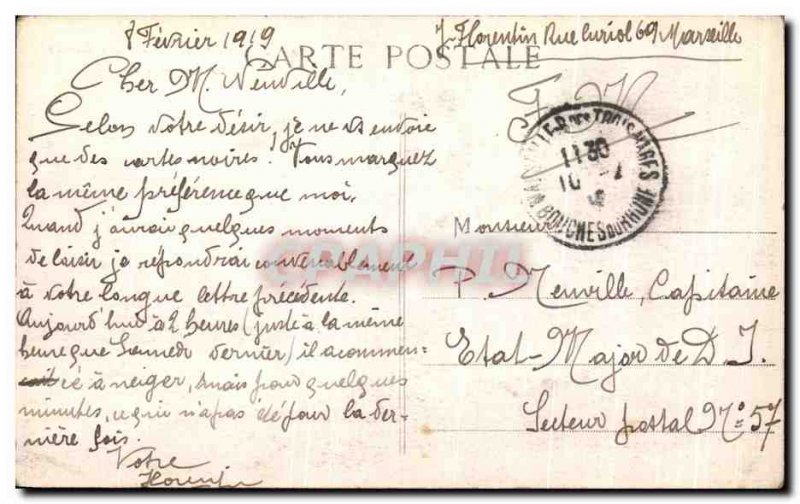 8 Février 1919
J. Florentin Rue Curiol 69 Marseille
CARTE POSTALE
F. M.
Cher M. Neuville,
Selon votre désir, je ne vs envoie
que des cartes noires! Vous marquez
la même préférence que moi.
Quand j'aurai quelques moments
de loisir je répondrai convenablement
à votre longue lettre précédente.
Aujourd'hui à 2 heures (juste à la même
heure que Samedi dernier) il a commen=
cé à neiger, mais pour quelques
minutes, ce qui n'a pas été pour la der-
nière fois.
Votre
Florentin
MARSEILLE-R. DES TROIS MAGES
11 30
10 - 2
BOUCHES DU RHONE
Monsieur
P. Neuville, Capitaine
Etat-Major de D. I.
Secteur postal No= 57
CPAPHIL